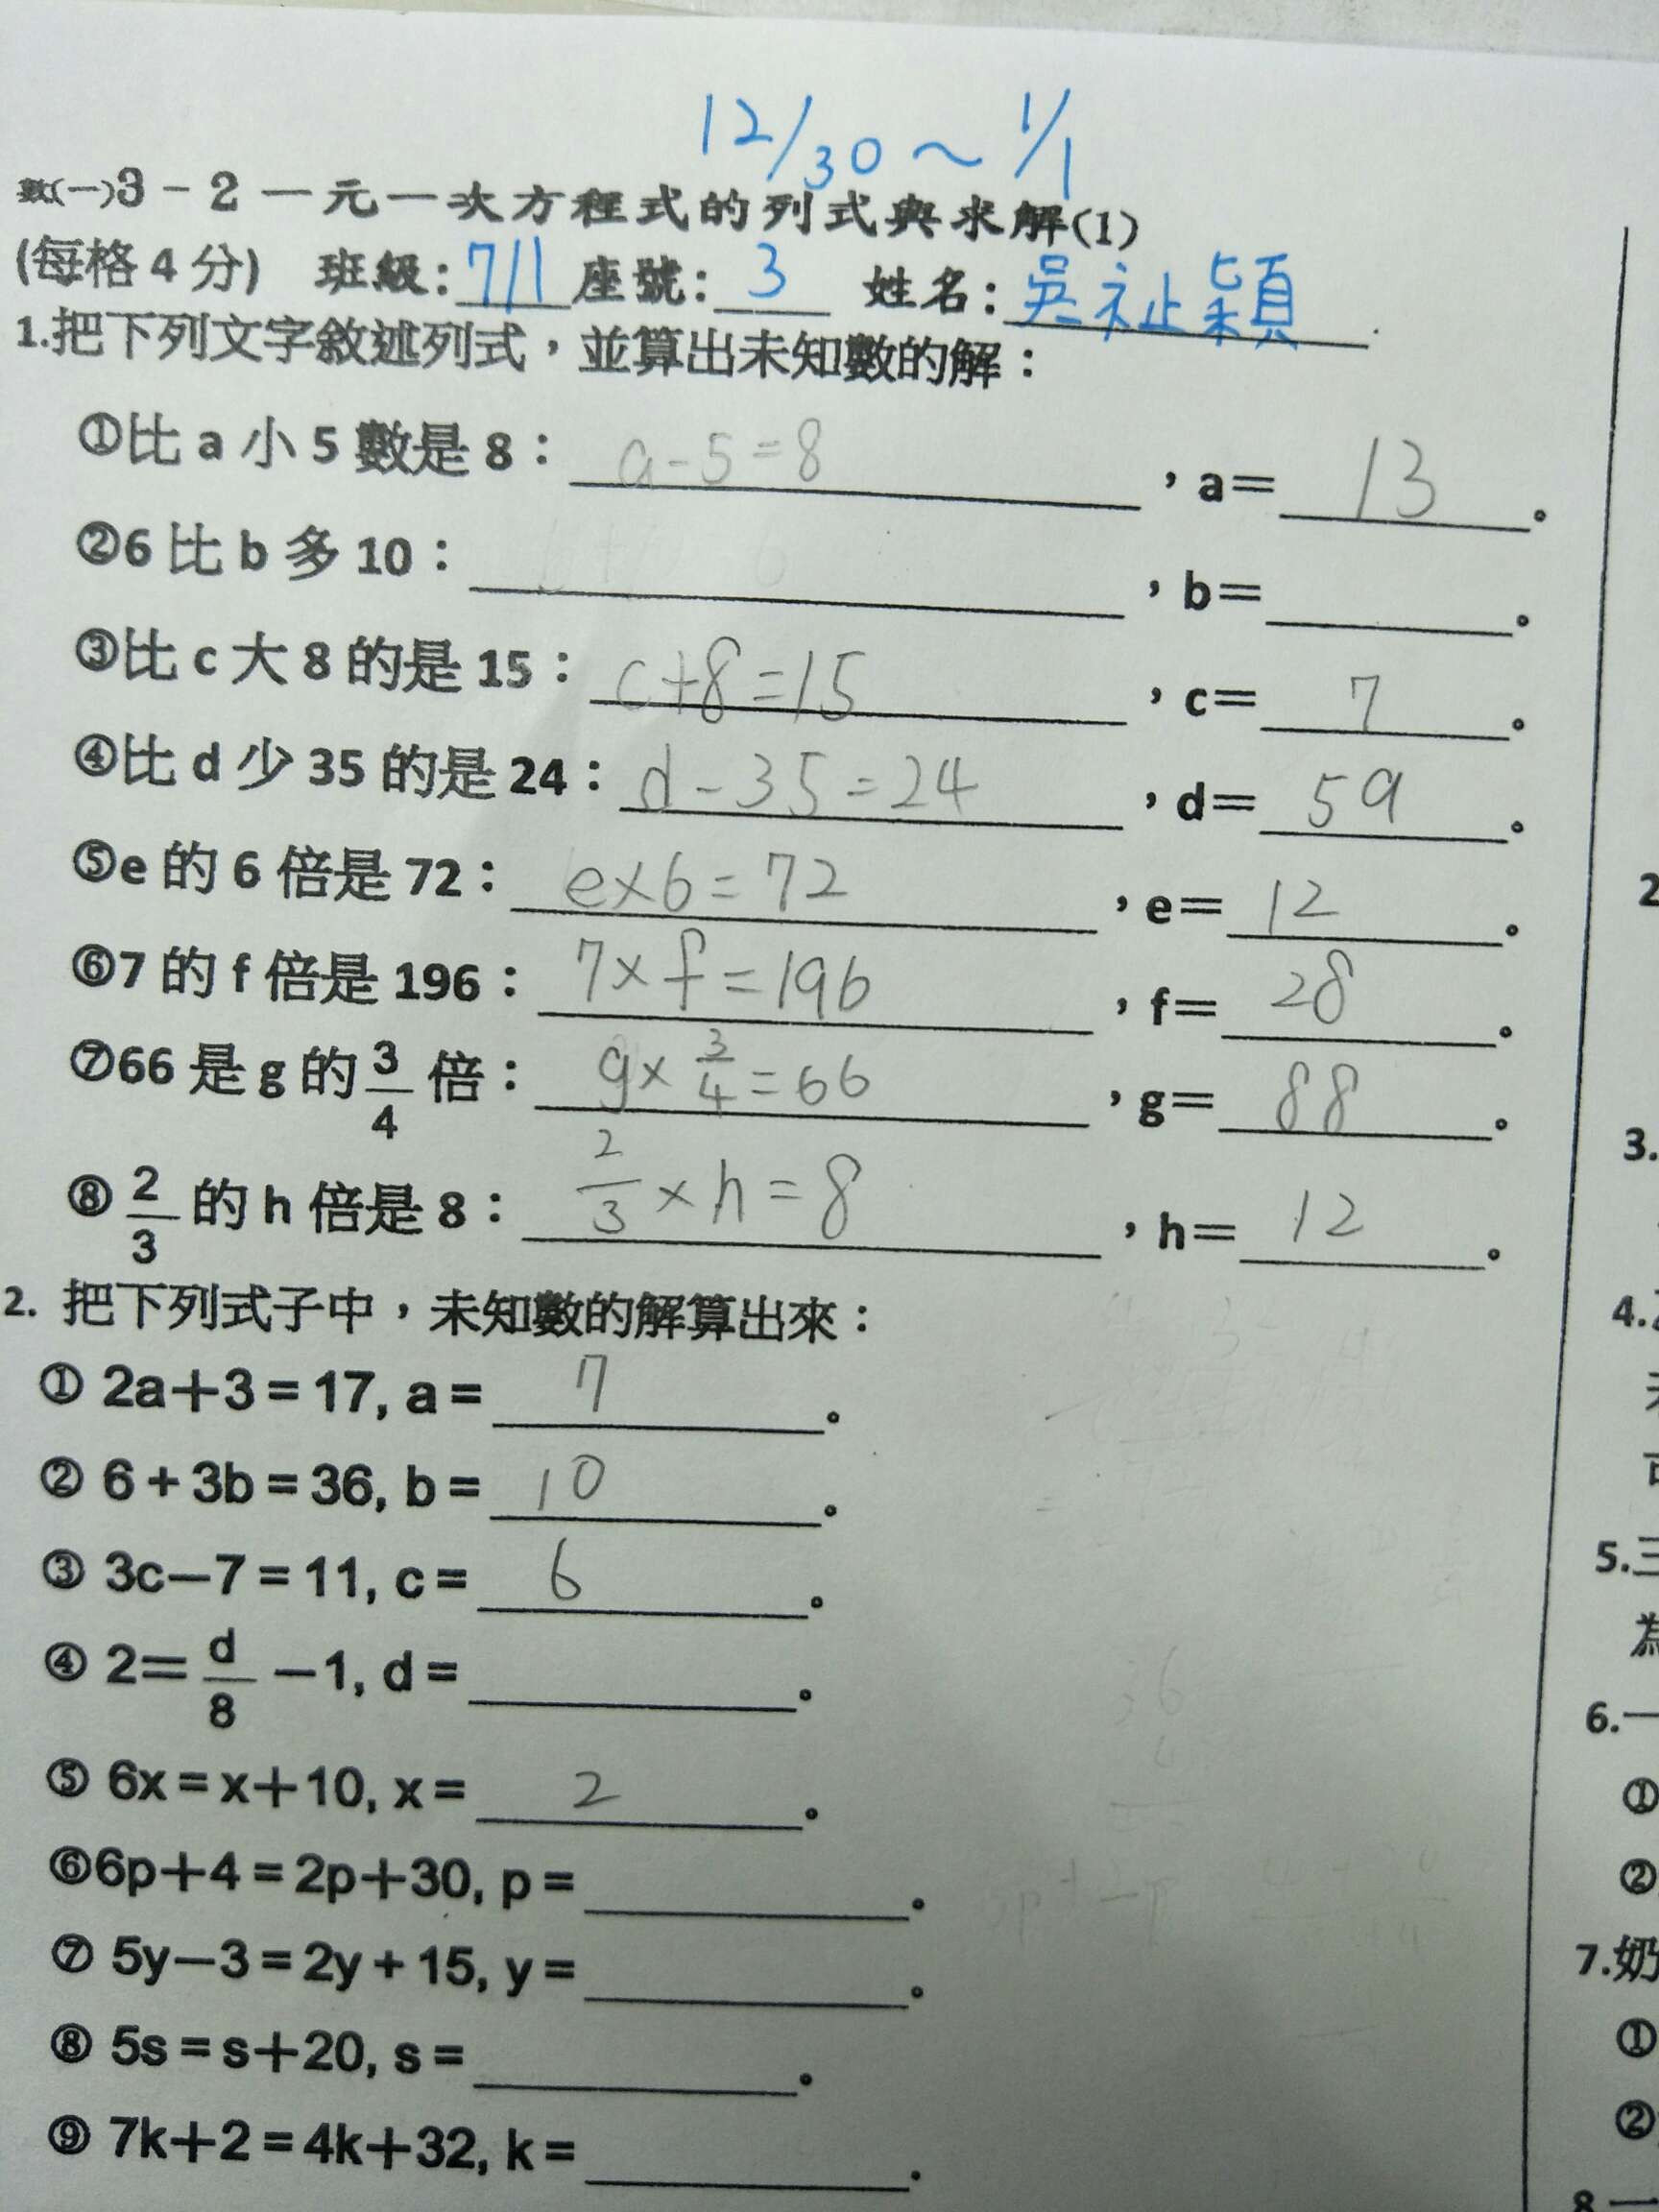 12/30～1/1
數(一)3－2 一元一次方程式的列式與求解(1)
(每格 4 分) 班級：711 座號：3 姓名：吳祉穎
1.把下列文字敘述列式，並算出未知數的解：
①比 a 小 5 數是 8：a-5=8，a＝13。
②6 比 b 多 10：，b＝。
③比 c 大 8 的是 15：c+8=15，c＝7。
④比 d 少 35 的是 24：d-35=24，d＝59。
⑤e 的 6 倍是 72：e×6=72，e＝12。
⑥7 的 f 倍是 196：7×f=196，f＝28。
⑦66 是 g 的 3/4 倍：g×3/4=66，g＝88。
⑧ 2/3 的 h 倍是 8：2/3×h=8，h＝12。
2. 把下列式子中，未知數的解算出來：
① 2a＋3=17, a= 7。
② 6+3b=36, b= 10。
③ 3c－7=11, c= 6。
④ 2＝d/8－1, d=。
⑤ 6x=x＋10, x= 2。
⑥6p＋4=2p＋30, p=。
⑦ 5y－3=2y+15, y=。
⑧ 5s=s＋20, s=。
⑨ 7k＋2=4k＋32, k=。
2
3.
4.
5.三
為
6.一
①
②
7.奶
①
②
8